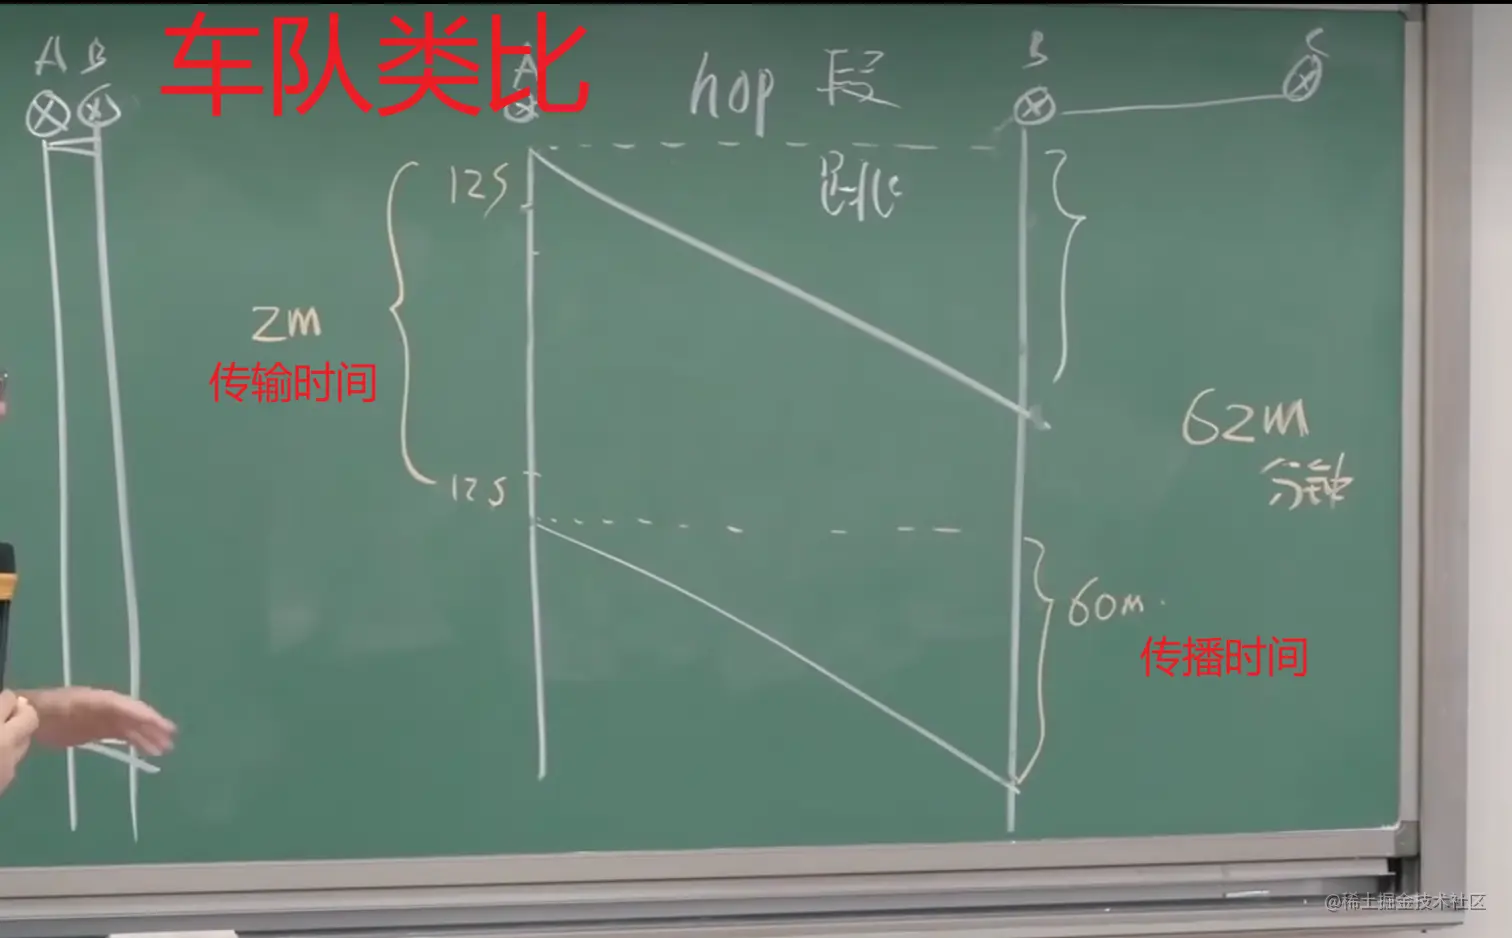 车队类比
A B
A
hop 段
B
C
12S
跳
2m
传输时间
12S
62m
分钟
60m.
传播时间
@稀土掘金技术社区